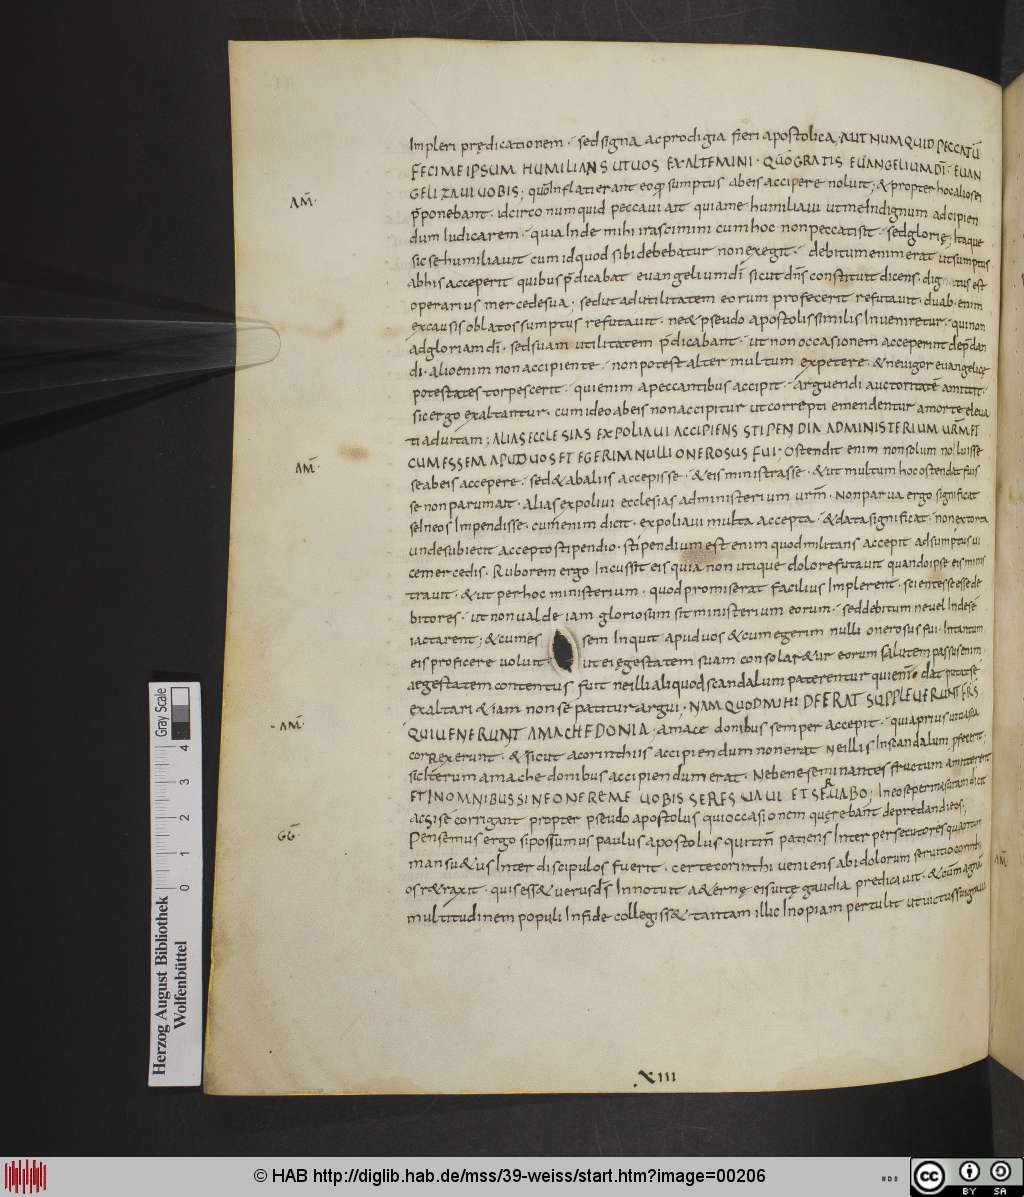 Impleri prędicationem· sed signa ac prodigia fieri apostolica, AUT NUM QUID PECCATŪ
FECI ME IPSUM HUMILIANS UT UOS EXALTEMINI· QUŌ GRATIS EUANGELIUM DĪ· EUAN
GELIZAUI UOBIS; quō Inflati erant eo qđ sumptus ab eis accipere noluit; & propter hoc alios ei
p̄ponebant· idcirco numquid peccaui ait quia me humiliaui ut me Indignum ad cipien
dum Iudicarem· quia Inde mihi irascimini cum hoc non peccatisit· sed glorię; Itaque
sic se humiliauit cum id quod sibi debebatur non exegit· debitum enim erat ut sumptus
abhis acceperit quibus p̄dicabat euangelium dī sicut dn̄s constituit dicens· dignatus est
operarius mercede sua; sed ut ad utilitatem eorum profecerit refutauit· duab· enim
ex causis oblatos sumptus refutauit· ne& pseudo apostolis similis Inueniretur· qui non
ad gloriam dī· sed suam utilitatem p̄dicabant· ut non occasionem acceperint dep̄dan
di· alioenim non accipiente· non potest alter multum expetere· & ne uigor euangelicę
potestates torpescerit· qui enim a peccantibus accipit· arguendi auctoritatē amittit·
sic ergo exaltantur· cum ideo ab eis non accipitur ut correpti emendentur a morte eleua
ti ad uitam; ALIAS ECCLESIAS EXPOLIAUI ACCIPIENS STIPENDIA AD MINISTERIUM UR̄M ET
CUM ESSEM APUD UOS ET EGERIM NULLI ONEROSUS FUI· Ostendit enim non solum noluisse
se ab eis accepere· sed & ab aliis accepisse· & eis ministrasse· & ut multum hoc ostendat fuis
se non parum ait· alias expoliui ecclesias ad ministerium urm̄· Non parua ergo significat
se In eos Impendisse· cum enim dicit· expoliaui multa accepta· & data significat· non extorta
unde subiecit accepto stipendio· stipendium est enim quod militans accepit ad sumptus ui
cem mercedis· Ruborem ergo Incussit eis quia non utique dolo refutauit quando ipse eis minis
trauit· & ut per hoc ministerium· quod promiserat facilius Implerent· scientes se esse de
bitores· ut non ualde iam gloriosum sit ministerium eorum· sed debitum ne uel Inde se
iactarent; & cum es sem Inquit apud uos & cum egerim nulli onerosus fui· In tantum
eis proficere uoluit· ut ei ęgestatem suam consolar&ur eorum salutem passus enim
aegestatem contentus fuit ne illi aliquod scandalum paterentur qui enim dat putat se
exaltari & iam non se patitur argui; NAM QUOD MIHI DEERAT SUPPLEUERUNT FR̄S
QUI UENERUNT A MACHEDONIA; a mace donibus semper accepit· quia prius uitia sua
correxerunt· & sicut a corinthiis accipiendum non erat ne illis In scandalum p̄ficerit·
sic Iterum a mache donibus accipiendum erat· Ne bene seminantes fructum amitterent
ET IN OMNIBUS SINE ONERE ME UOBIS SERES UAUI ET SERUABO; In eo se permansuram dicit
ac si se corrigant propter pseudo apostolus qui occasionem quęrebant depredandi eos;
Pensemus ergo si possumus paulus apostolus quitīn patiens Inter persecutores quantum
mansu&us Inter discipulos fuerit· certe corinthi ueniens ab idolorum seruitio corinthi
os r&raxit· quis ess& uerus dī Innotuit a&ernę eis uitę gaudia predicauit· & cūm agnā
multitudinem populi In fide collegiss& tantam illic Inopiam pertulit ut uictus sui graui
AM̄·
AM̄·
AM̄·
GḠ·
AM̄
XIII
Herzog August Bibliothek
Wolfenbüttel
0 1 2 3 4
Gray Scale
© HAB http://diglib.hab.de/mss/39-weiss/start.htm?image=00206
cc BY SA